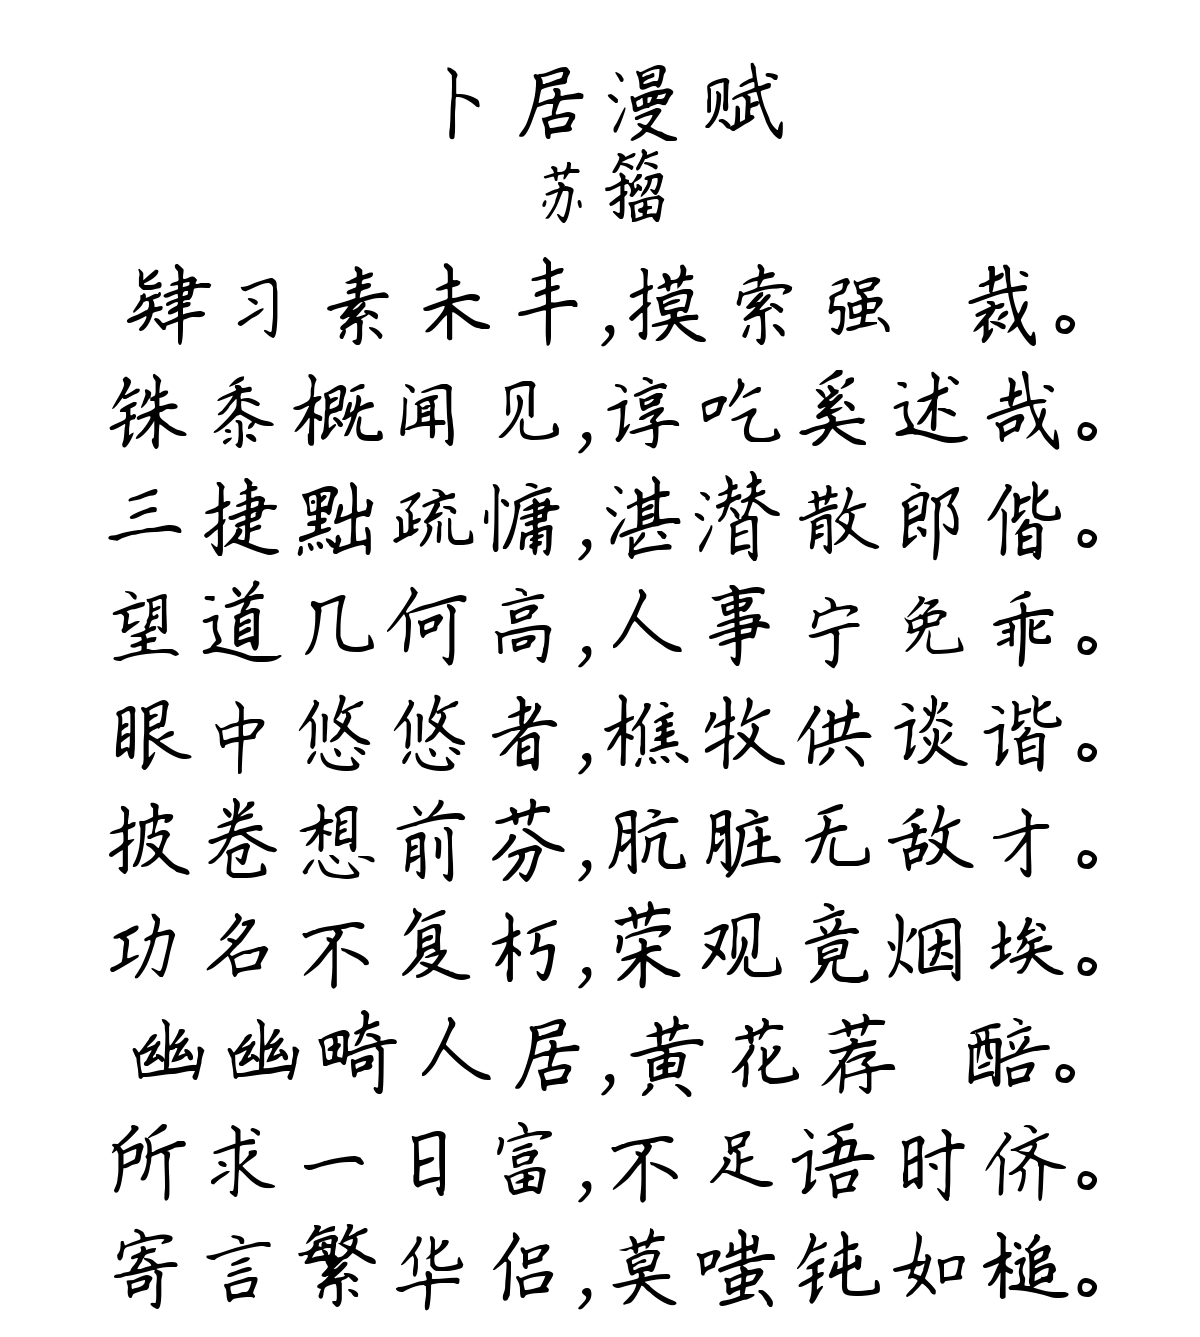 卜居漫赋
苏籀
肄习素未丰,摸索强裁。
铢黍概闻见,谆吃奚述哉。
三捷黜疏慵,湛潜散郎偕。
望道几何高,人事宁免乖。
眼中悠悠者,樵牧供谈谐。
披卷想前芬,肮脏无敌才。
功名不复朽,荣观竟烟埃。
幽幽畸人居,黄花荐醅。
所求一日富,不足语时侪。
寄言繁华侣,莫嗤钝如槌。